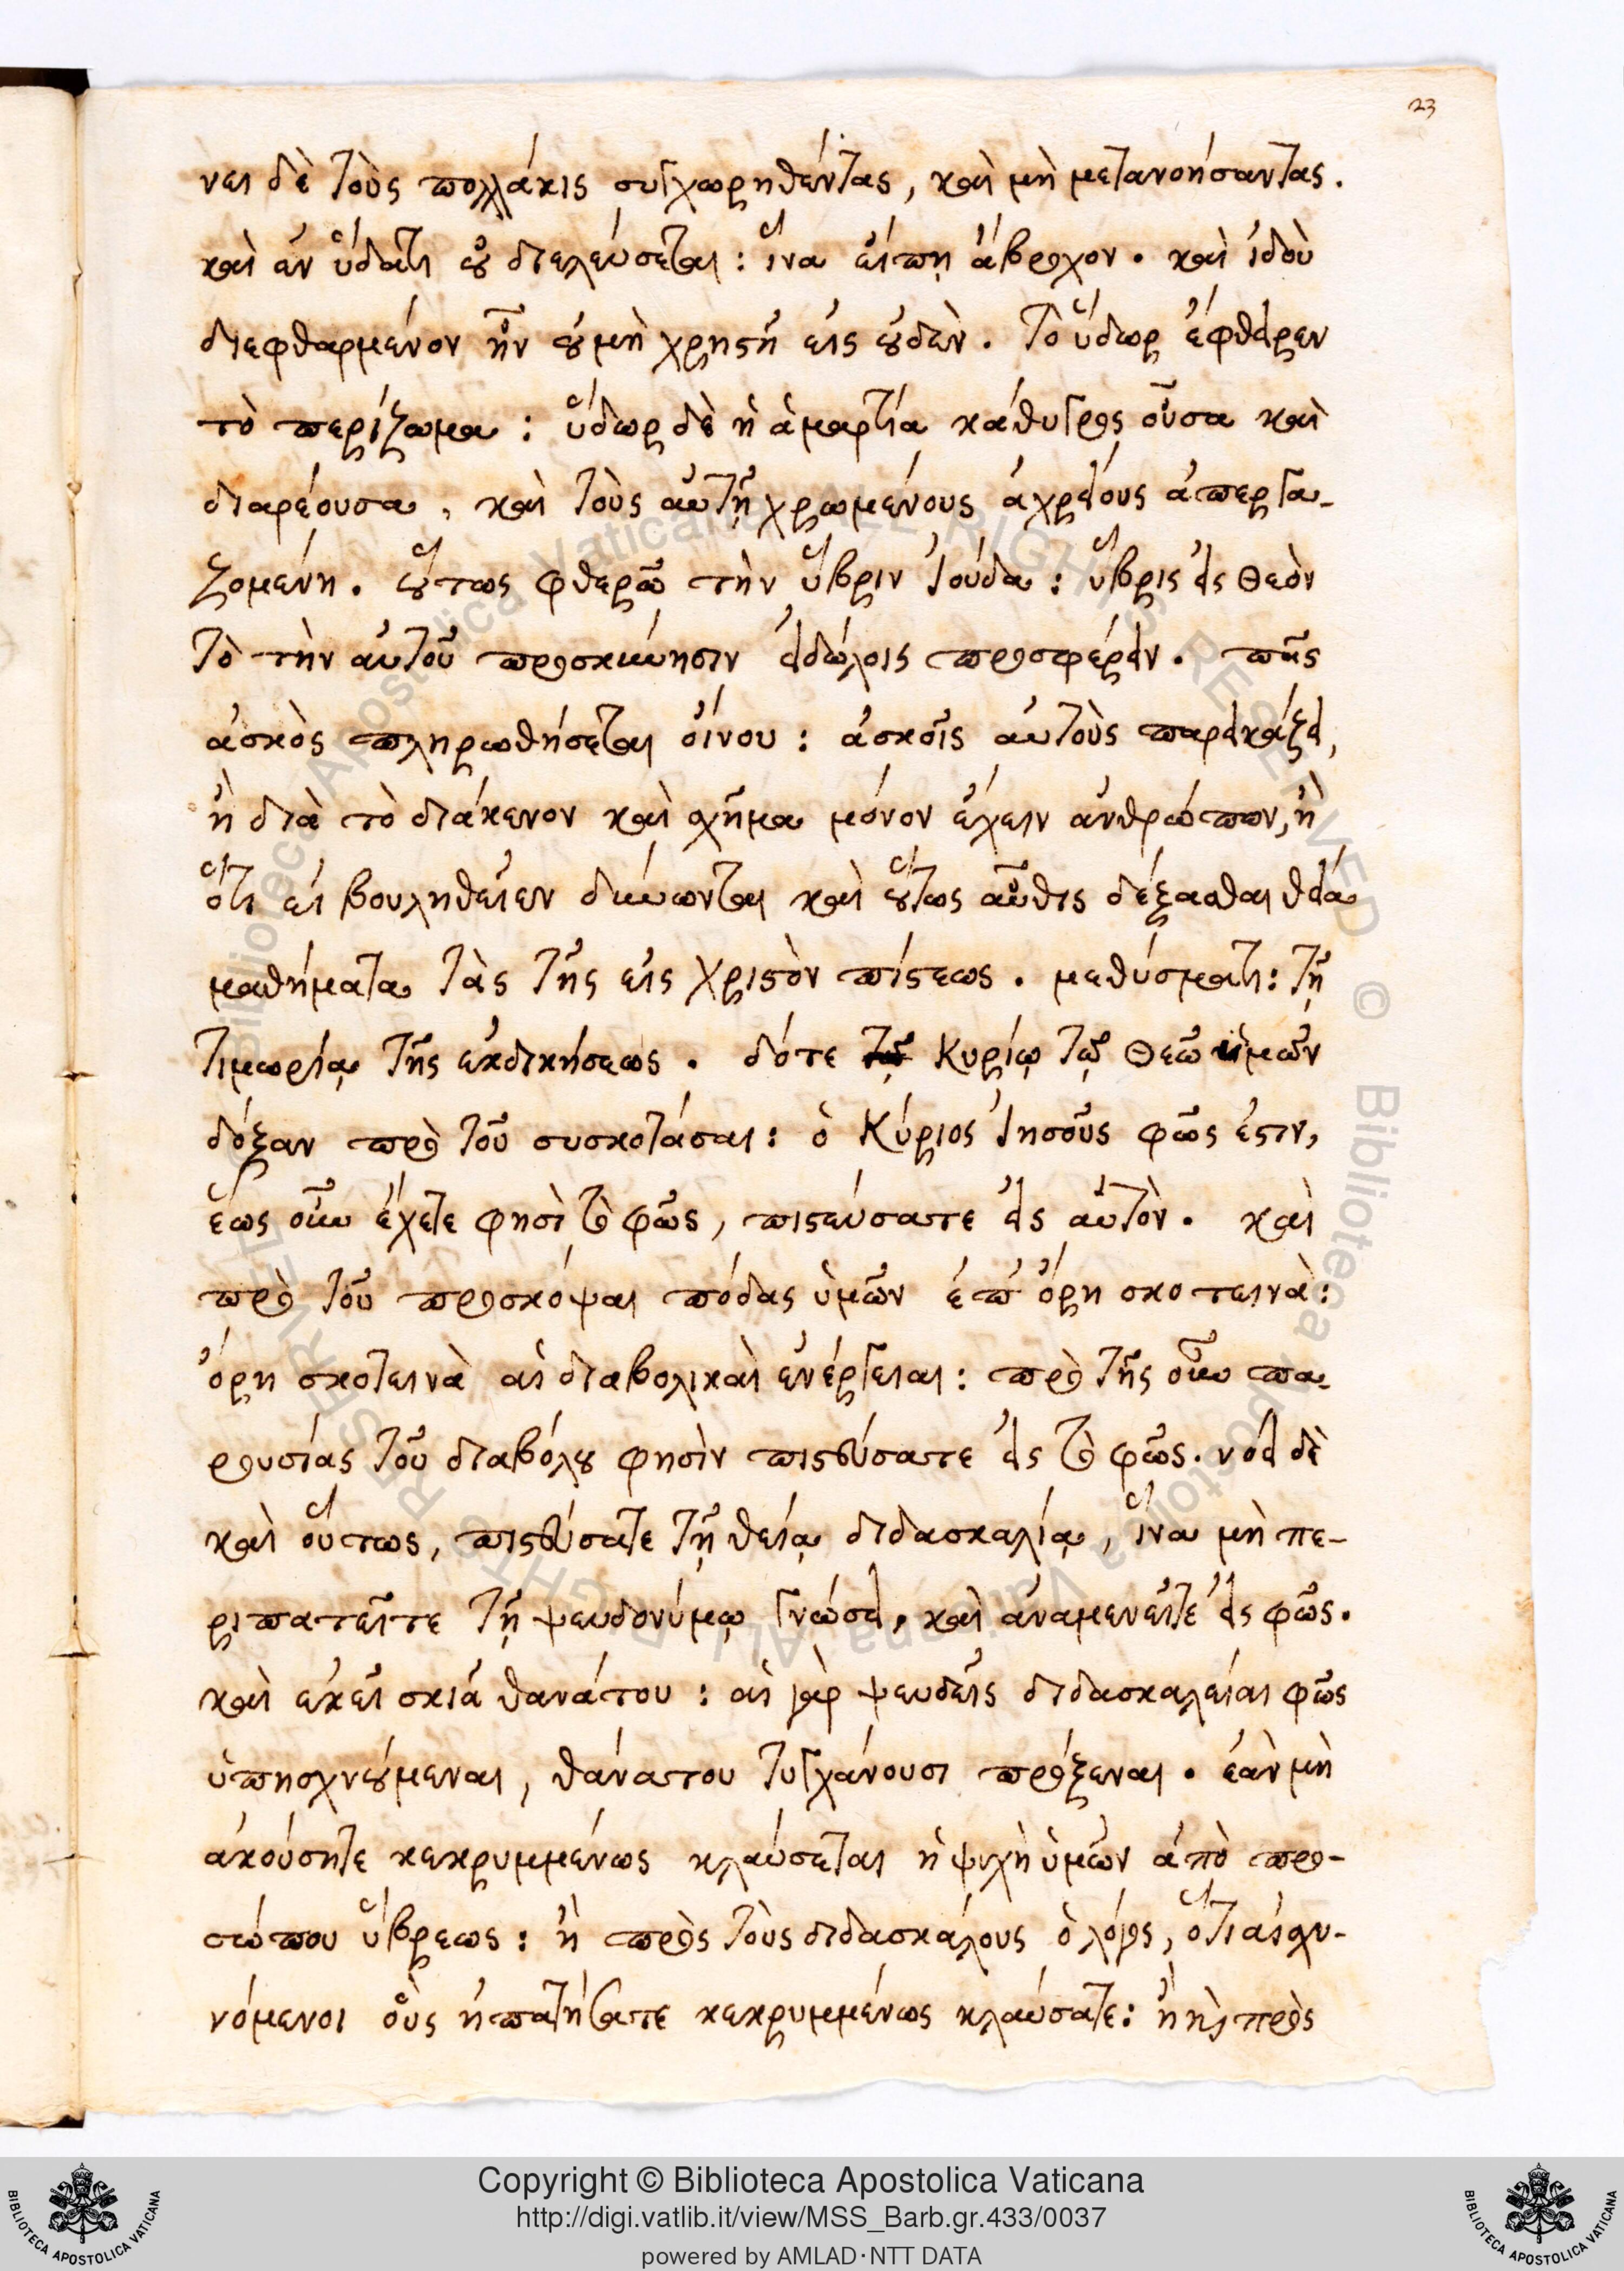 23
νει δὲ τοὺς πολλάκις συγχωρηθέντας, καὶ μὴ μετανοήσαντας.
καὶ ἐν ὕδατι οὐ διελεύσεται: ἵνα εἴπῃ ἄβροχον. καὶ ἰδοὺ
διεφθαρμένον ἦν οὐ μὴ χρηστῇ εἰς οὐδὲν. Τὸ ὕδωρ ἔφθειρεν
τὸ περίζωμα: ὕδωρ δὲ ἡ ἁμαρτία κάθυγρος οὖσα καὶ
διαρέουσα, καὶ τοὺς αὐτῇ χρωμένους ἀχρείους ἀπεργα-
ζομένη. οὕτως φθερῶ τὴν ὕβριν Ἰούδα: ὕβρις εἰς Θεὸν
τὸ τὴν αὐτοῦ προσκύνησιν εἰδώλοις προσφέρειν. πᾶς
ἀσκὸς πληρωθήσεται οἴνου: ἀσκοῖς αὐτοὺς παρεικάζει,
ἢ διὰ τὸ διάκενον καὶ σχῆμα μόνον ἔχειν ἀνθρώπων, ἢ
ὅτι εἰ βουληθεῖεν δύνωνται καὶ οὕτως αὖθις δέξασθαι θεῖα
μαθήματα τὰς τῆς εἰς Χριστὸν πίστεως. μεθύσματι: τῇ
τιμωρίᾳ τῆς ἐκδικήσεως. δότε Κυρίῳ τῷ Θεῷ ὑμῶν
δόξαν πρὸ τοῦ συσκοτάσαι: ὁ Κύριος Ἰησοῦς φῶς ἐστιν,
ἕως οὖν ἔχετε φησὶ τὸ φῶς, πιστεύσατε εἰς αὐτὸν. καὶ
πρὸ τοῦ προσκόψαι πόδας ὑμῶν ἐπ' ὄρη σκοτεινὰ:
ὄρη σκοτεινὰ αἱ διαβολικαὶ ἐνέργειαι: πρὸ τῆς οὖν πα-
ρουσίας τοῦ διαβόλου φησὶν πιστεύσατε εἰς τὸ φῶς. νόει δὲ
καὶ οὕτως, πιστεύσατε τῇ θείᾳ διδασκαλίᾳ, ἵνα μὴ πε-
ριπατεῖτε τῇ ψευδονύμῳ γνώσει. καὶ ἀναμενεῖτε εἰς φῶς.
καὶ ἐκεῖ σκιά θανάτου: αἱ γὰρ ψευδεῖς διδασκαλείαι φῶς
ὑπησχνούμεναι, θανάτου τυγχάνουσι πρόξεναι. ἐὰν μὴ
ἀκούσητε κεκρυμμένως κλαύσεται ἡ ψυχὴ ὑμῶν ἀπὸ προ-
σώπου ὕβρεως: ἢ πρὸς τοὺς διδασκάλους ὁ λόγος, ὅτι αἰσχυ-
νόμενοι οὓς ἠπατήσατε κεκρυμμένως κλαύσατε: ἢ καὶ πρὸς
Copyright © Biblioteca Apostolica Vaticana
http://digi.vatlib.it/view/MSS_Barb.gr.433/0037
powered by AMLAD·NTT DATA